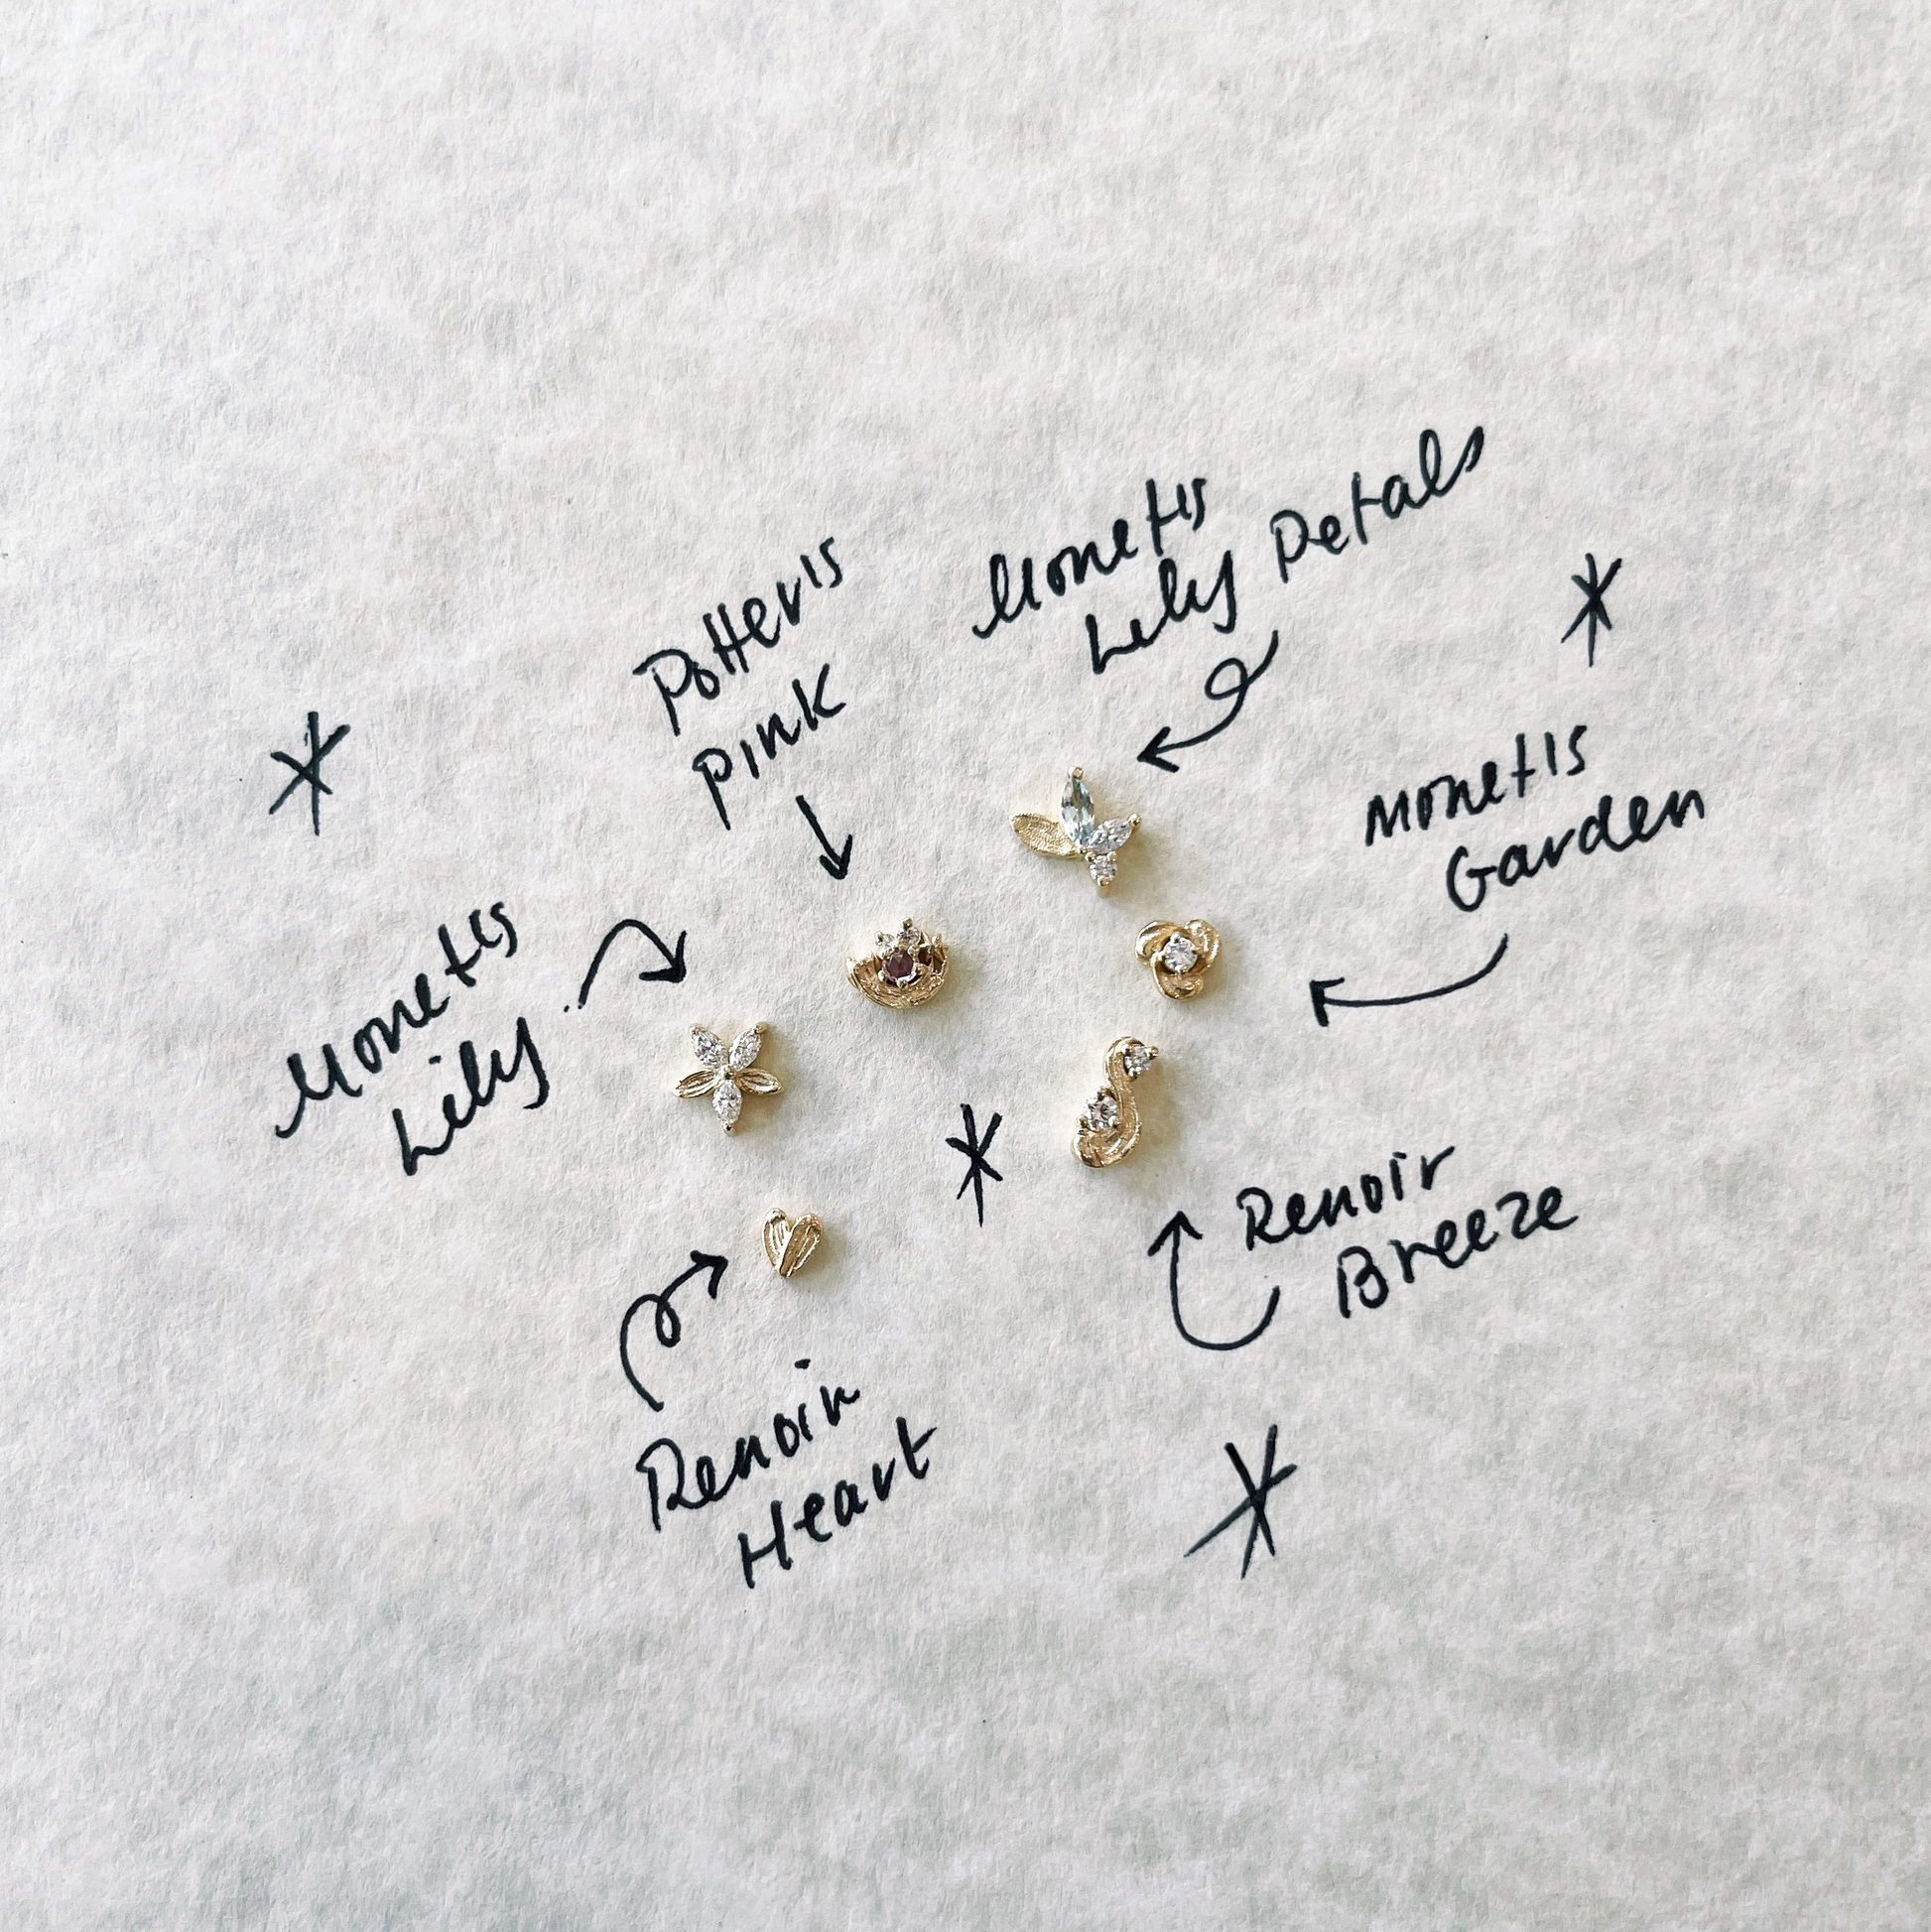 Monet's
Lily Petals
Potter's
Pink
Monet's
Garden
Monet's
Lily
Renoir
Breeze
Renoir
Heart